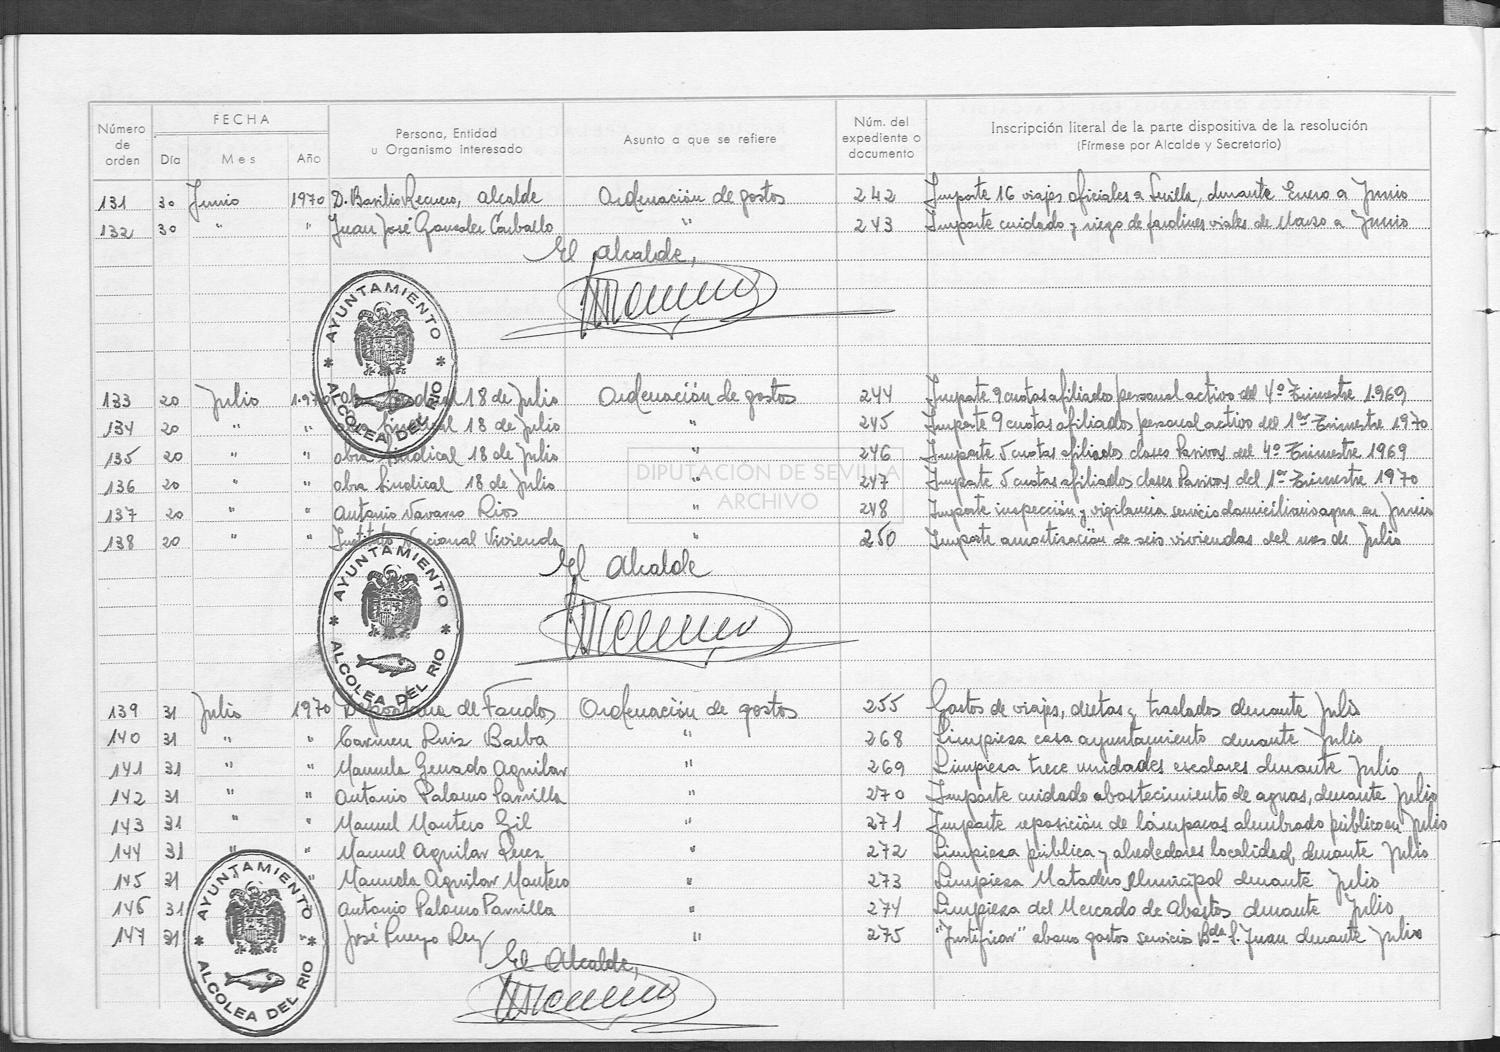 Número de orden | FECHA | Persona, Entidad u Organismo interesado | Asunto a que se refiere | Núm. del expediente o documento | Inscripción literal de la parte dispositiva de la resolución (Fírmese por Alcalde y Secretario)
Día | Mes | Año
131 30 Junio 1970 D. Basilio Recuero, alcalde Ordenación de gastos 242 Importe 16 viajes oficiales a Sevilla, durante Enero a Junio
132 30 " " Juan José Gonzalez Carballo " 243 Importe cuidado y riego de jardines viales de Marzo a Junio
El Alcalde,
AYUNTAMIENTO
ALCOLEA DEL RIO
133 20 Julio 1970 Obra Sindical 18 de Julio Ordenación de gastos 244 Importe 9 cuotas afiliados personal activo del 4º Trimestre 1969
134 20 " " Obra Sindical 18 de Julio " 245 Importe 9 cuotas afiliados personal activo del 1er Trimestre 1970
135 20 " " obra Sindical 18 de Julio " 246 Importe 5 cuotas afiliados clases Pasivas del 4º Trimestre 1969
136 20 " " obra Sindical 18 de Julio " 247 Importe 5 cuotas afiliados clases Pasivas del 1er Trimestre 1970
137 20 " " Antonio Navarro Rios " 248 Importe inspección y vigilancia servicio domiciliario agua en Junio
138 20 " " Instituto Nacional Vivienda " 250 Importe amortización de seis viviendas del mes de Julio
DIPUTACIÓN DE SEVILLA
ARCHIVO
El Alcalde
AYUNTAMIENTO
ALCOLEA DEL RIO
139 31 Julio 1970 Depositaria de Fondos Ordenación de gastos 255 Gastos de viajes, dietas y traslados durante Julio
140 31 " " Carmen Ruiz Barba " 268 Limpieza casa ayuntamiento durante Julio
141 31 " " Manuela Aguilar " 269 Limpieza trece unidades escolares durante Julio
142 31 " " Antonio Palomo Parrilla " 270 Importe cuidado abastecimiento de aguas, durante Julio
143 31 " " Manuel Montero Gil " 271 Importe reposición de lámparas alumbrado público en Julio
144 31 " " Manuel Aguilar Perez " 272 Limpieza pública y alrededores localidad, durante Julio
145 31 " Manuela Aguilar Montero " 273 Limpieza Matadero Municipal durante Julio
146 31 " Antonio Palomo Parrilla " 274 Limpieza del Mercado de Abastos durante Julio
147 31 " José Pueyo Rey " 275 "Justificar" abono gastos servicio Bda S. Juan durante Julio
El Alcalde,
AYUNTAMIENTO
ALCOLEA DEL RIO